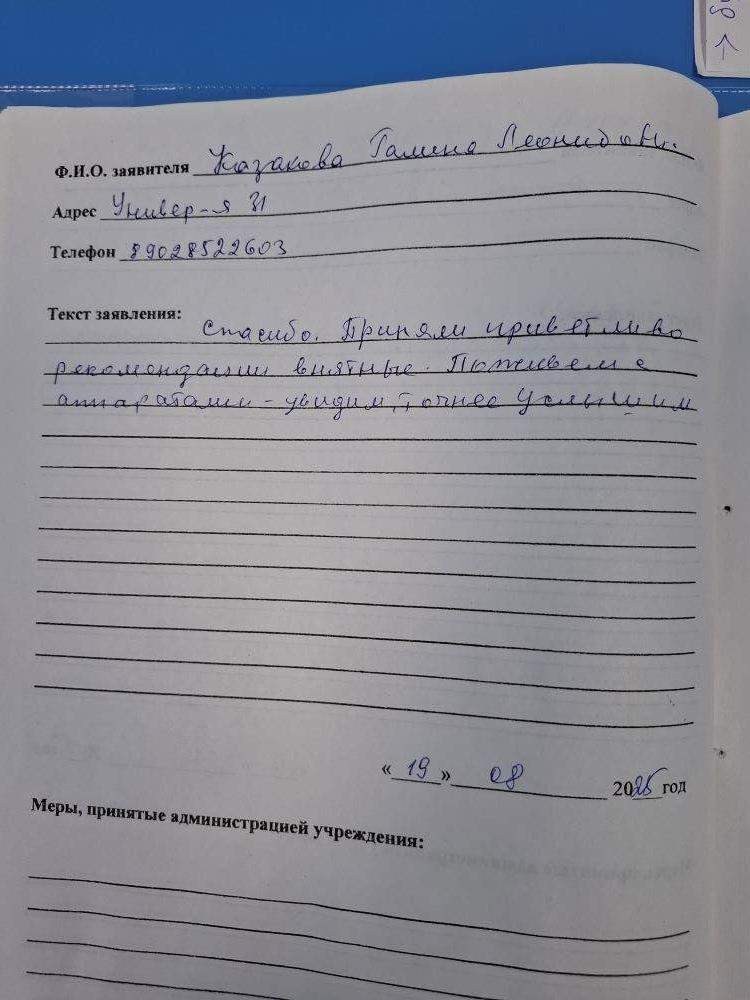 Ф.И.О. заявителя Казакова Галина Леонидовн.
Адрес Универ-я 31
Телефон 89028522603
Текст заявления:
Спасибо. Приняли приветливо
рекомендации внятные. Поживем с
аппаратами - увидим, точнее услышим
« 19 » 08 2025 год
Меры, принятые администрацией учреждения: